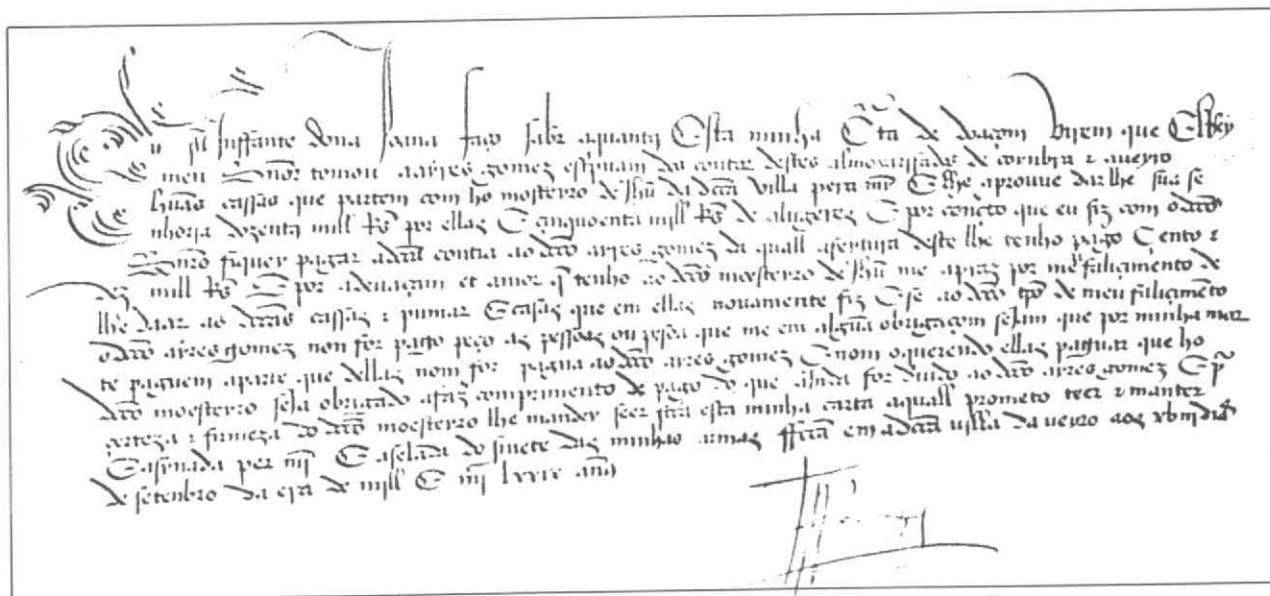 Eu ssª Iffante dona Joana faço saber aquantos Esta minha Cta de doaçom virem que ElRey
meu Snnor tomou a ayres gomez esprivam da contar destes almoxarifados de coinbra e aveyro
hũas cassas que partem com ho mosteyro de Jhũ da dcta villa pera mĩ E lhe aprouve dar lhe sua se
nhoria dozentos mill Rs por ellas E cinquoenta mill Rs de alugeres E por concto que eu fiz com o dcto
Snnor fiquey pagar a dcta contia ao dcto ayres gomez da quall afeytura deste lhe tenho pago Cento e
dez mill Rs E por a devaçam et amor q tenho ao dcto moesteyro de Jhũ me apraz por meu faliçimento de
lhe daar as dctas cassas e pumar E casas que em ellas novamente fiz E se ao dcto tpo de meu faliçimẽto
o dcto ayres gomez non for pago peço as pessoas ou pesoa que me em algũa obrigaçom sejam que por minha mor
te paguem a parte que dellas nom for pagua ao dcto ayres gomez E nom o querendo ellas paguar que ho
dcto moesteyro seja obrigado a faz comprimento de pago do que ainda for divido ao dcto ayres gomez E pr
certeza e firmeza do dcto moesteyro lhe mandey seer fcta esta minha carta a quall prometo teer e manter
E asynada per mĩ E aselada do sinete das minhas armas ffcta em a dcta villa da veiro aos xbiij dias
de setenbro da era de mill E iiij lxxix anos